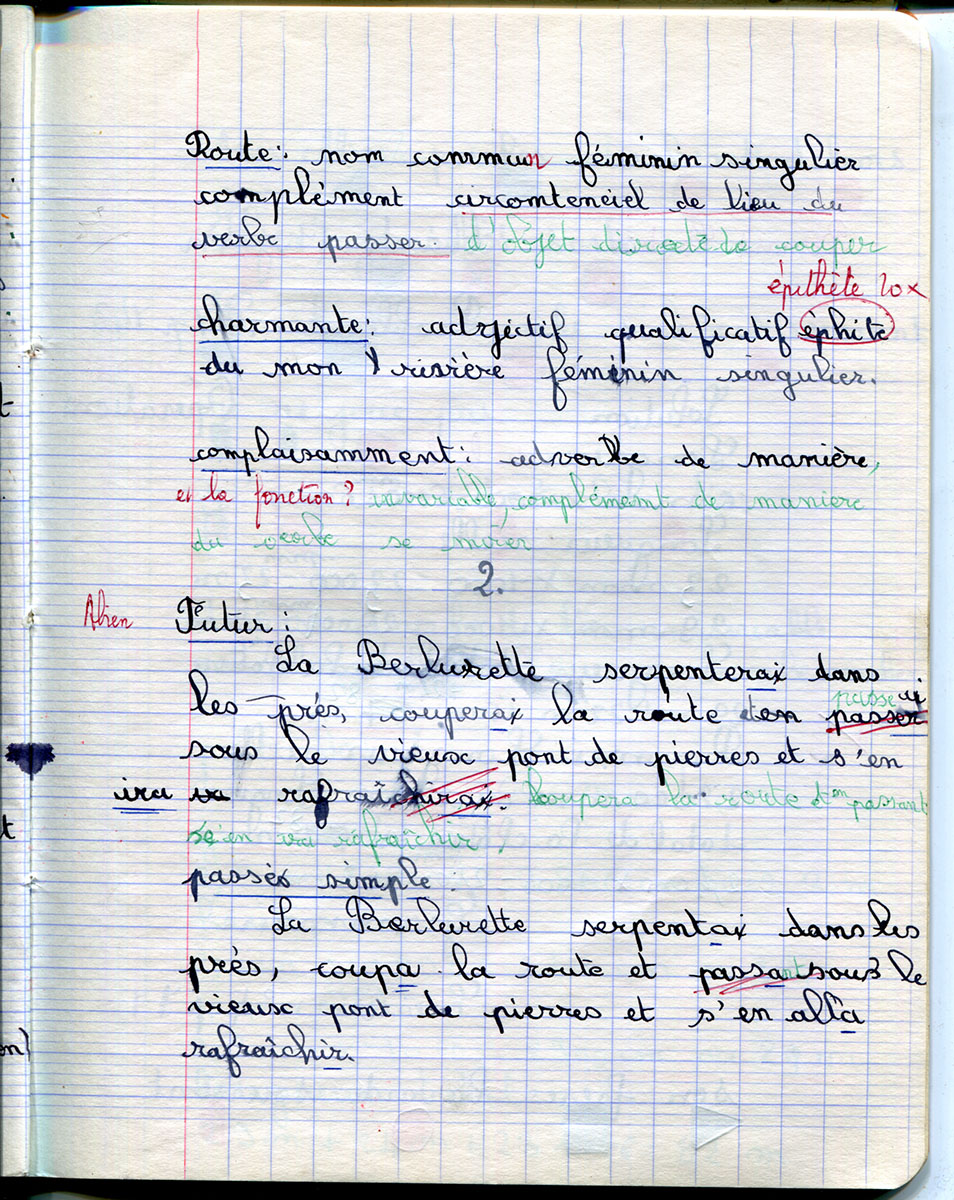 Route : nom commun féminin singulier
complément circomtenciel de lieu du
verbe passer. d'objet direct de couper
épithète 20x
charmante : adjectif qualificatif éphite
du mon rivière féminin singulier.
complaisamment : adverbe de manière,
et la fonction ? invariable, complément de manière
du verbe se mirer
2.
Futur :
La Berlurette serpenterai dans
les près, couperai la route en passer
passe
sous le vieux pont de pierres et s'en
ira va rafraîchirai. coupera la route en passant
s'en va rafraîchir.
passés simple :
La Berlurette serpentai dans les
près, coupa la route et passant sous le
vieux pont de pierres et s'en alla
rafraîchir.